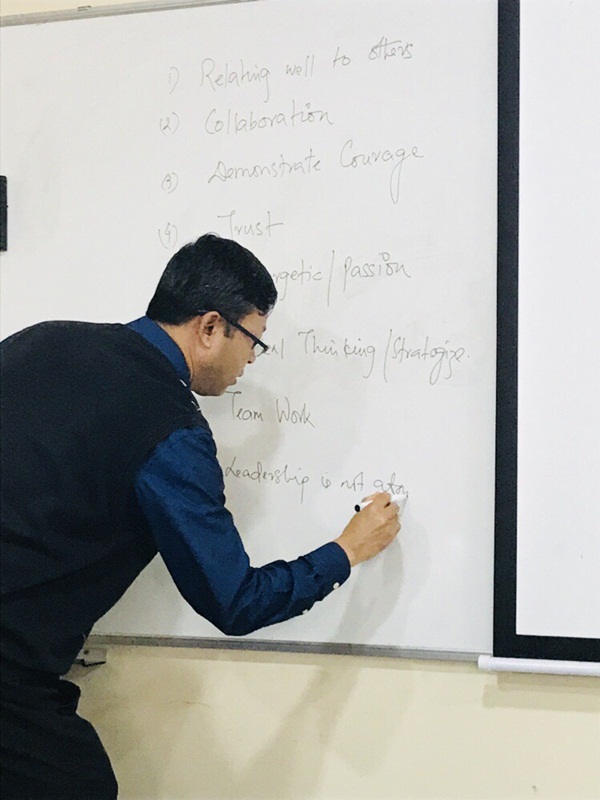 1) Relating well to others
(2) Collaboration
(3) Demonstrate Courage
(4) Trust
/Passion
Thinking/Strategize.
Team Work
Leadership is not